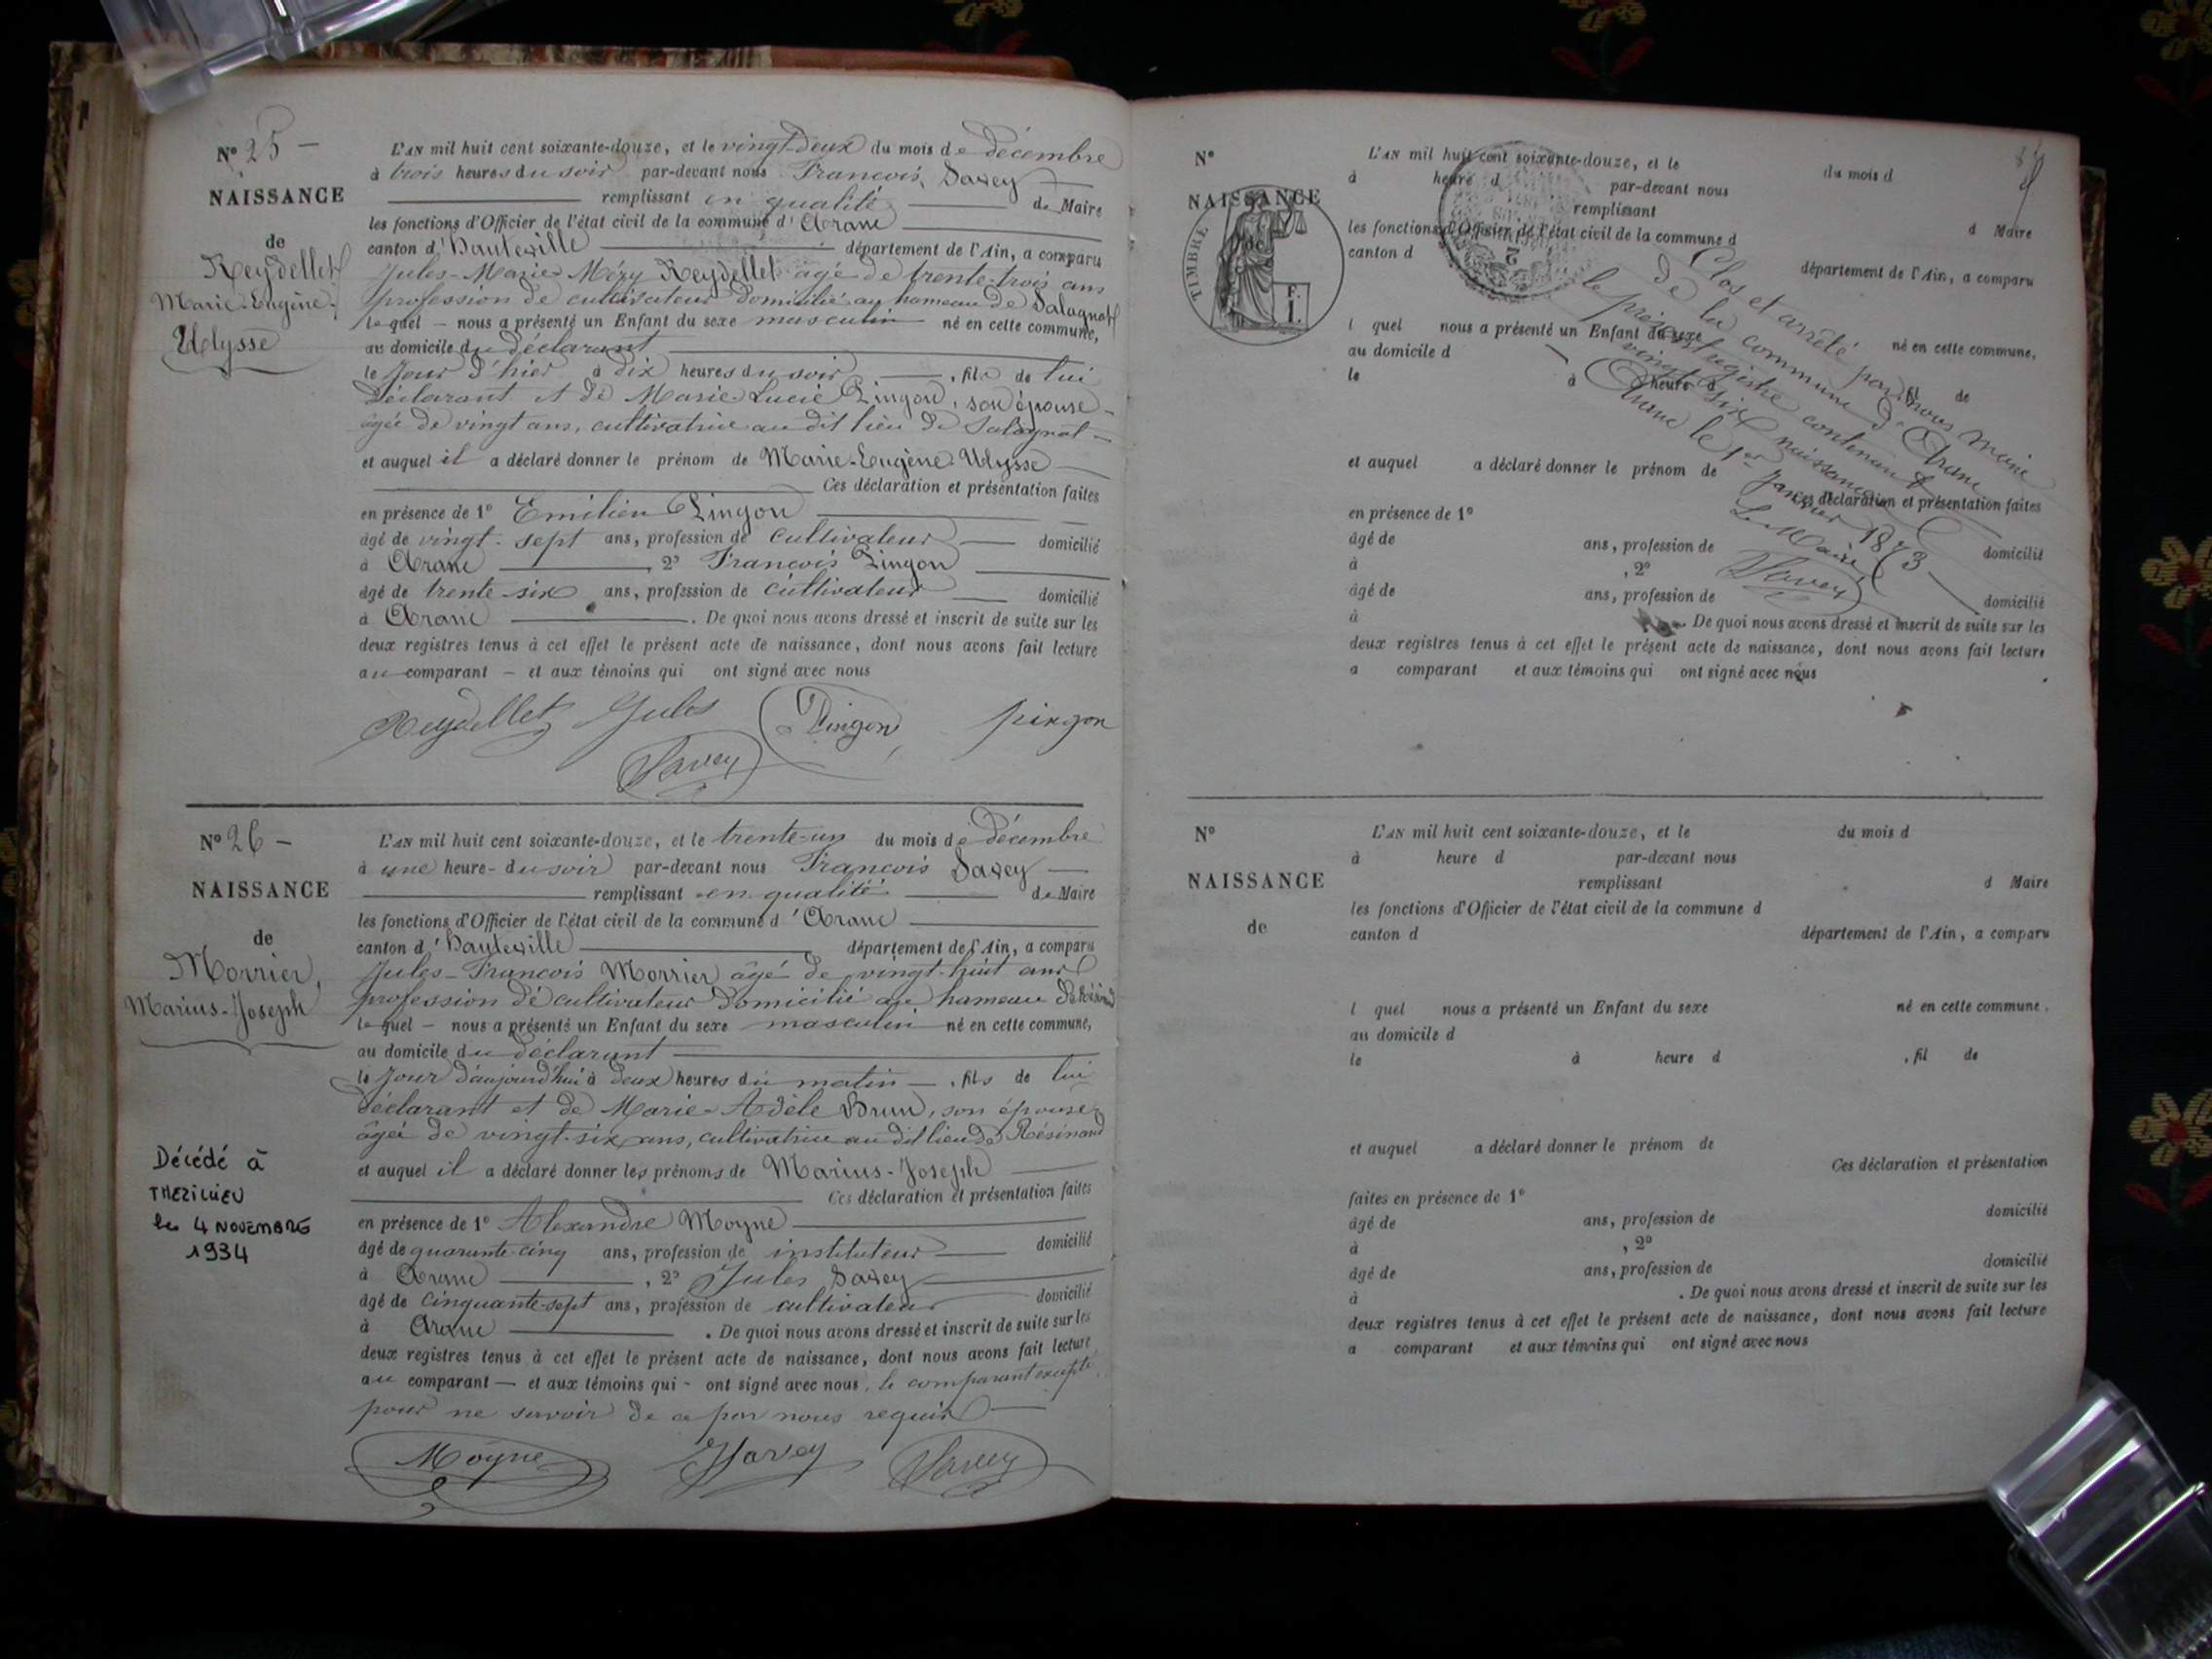 N° 25 —
NAISSANCE
de
Reydellet
Marie-Eugène-
Ulysse
L'AN mil huit cent soixante-douze, et le vingt-deux du mois de décembre
à trois heures du soir par-devant nous François Savey
remplissant en qualité de Maire
les fonctions d'Officier de l'état civil de la commune d'Aranc
canton d'hauteville département de l'Ain, a comparu
Jules-Marie Méry Reydellet âgé de trente-trois ans
profession de cultivateur domicilié au hameau de Salagnat
lequel — nous a présenté un Enfant du sexe masculin né en cette commune,
au domicile du déclarant
le Jour d'hier à dix heures du soir , fils de lui
déclarant et de Marie Lucie Pingon, son épouse -
âgée de vingt ans, cultivatrice au dit lieu de Salagnat —
et auquel il a déclaré donner le prénom de Marie-Eugène-Ulysse
Ces déclaration et présentation faites
en présence de 1° Emilien Pingon
âgé de vingt-sept ans, profession de cultivateur domicilié
à Aranc , 2° François Pingon
âgé de trente-six ans, profession de cultivateur domicilié
à Aranc . De quoi nous avons dressé et inscrit de suite sur les
deux registres tenus à cet effet le présent acte de naissance, dont nous avons fait lecture
au comparant — et aux témoins qui ont signé avec nous
Reydellet Jules Pingon pingon
Savey
N° 26 —
NAISSANCE
de
Morrier,
Marius-Joseph
Décédé à
le 4 NOVEMBRE
1934
L'AN mil huit cent soixante-douze, et le trente-un du mois de décembre
à une heure du soir par-devant nous François Savey
remplissant en qualité de Maire
les fonctions d'Officier de l'état civil de la commune d'Aranc
canton d'hauteville département de l'Ain, a comparu
Jules-François Morrier âgé de vingt-huit ans
profession de cultivateur domicilié au hameau de Résinand
lequel — nous a présenté un Enfant du sexe masculin né en cette commune,
au domicile du déclarant
le Jour d'aujourd'hui à deux heures du matin — , fils de lui
déclarant et de Marie-Adèle Brun, son épouse
âgée de vingt-six ans, cultivatrice au dit lieu de Résinand
et auquel il a déclaré donner les prénoms de Marius-Joseph
Ces déclaration et présentation faites
en présence de 1° Alexandre Moyne
âgé de quarante-cinq ans, profession de instituteur domicilié
à Aranc , 2° Jules Savey
âgé de cinquante-sept ans, profession de cultivateur domicilié
à Aranc . De quoi nous avons dressé et inscrit de suite sur les
deux registres tenus à cet effet le présent acte de naissance, dont nous avons fait lecture
au comparant — et aux témoins qui - ont signé avec nous, le comparant excepté
pour ne savoir de ce par nous requis
Moyne JSavey Savey
N°
NAISSANCE
TIMBRE
F.
1.
L'AN mil huit cent soixante-douze, et le du mois d
à heure d par-devant nous
remplissant d Maire
les fonctions d'Officier de l'état civil de la commune d
canton d département de l'Ain, a comparu
l quel nous a présenté un Enfant du sexe né en cette commune,
au domicile d
le à heure d , fil de
et auquel a déclaré donner le prénom de
Ces déclaration et présentation faites
en présence de 1°
âgé de ans, profession de domicilié
à , 2°
âgé de ans, profession de domicilié
à . De quoi nous avons dressé et inscrit de suite sur les
deux registres tenus à cet effet le présent acte de naissance, dont nous avons fait lecture
a comparant et aux témoins qui ont signé avec nous
Clos et arrêté par nous maire
de la commune d'Aranc
le présent registre contenant
vingt-six naissances
Aranc le 1er Janvier 1873
Le Maire,
Savey
N°
NAISSANCE
de
L'AN mil huit cent soixante-douze, et le du mois d
à heure d par-devant nous
remplissant d Maire
les fonctions d'Officier de l'état civil de la commune d
canton d département de l'Ain, a comparu
l quel nous a présenté un Enfant du sexe né en cette commune,
au domicile d
le à heure d , fil de
et auquel a déclaré donner le prénom de
Ces déclaration et présentation
faites en présence de 1°
âgé de ans, profession de domicilié
à , 2°
âgé de ans, profession de domicilié
à . De quoi nous avons dressé et inscrit de suite sur les
deux registres tenus à cet effet le présent acte de naissance, dont nous avons fait lecture
a comparant et aux témoins qui ont signé avec nous